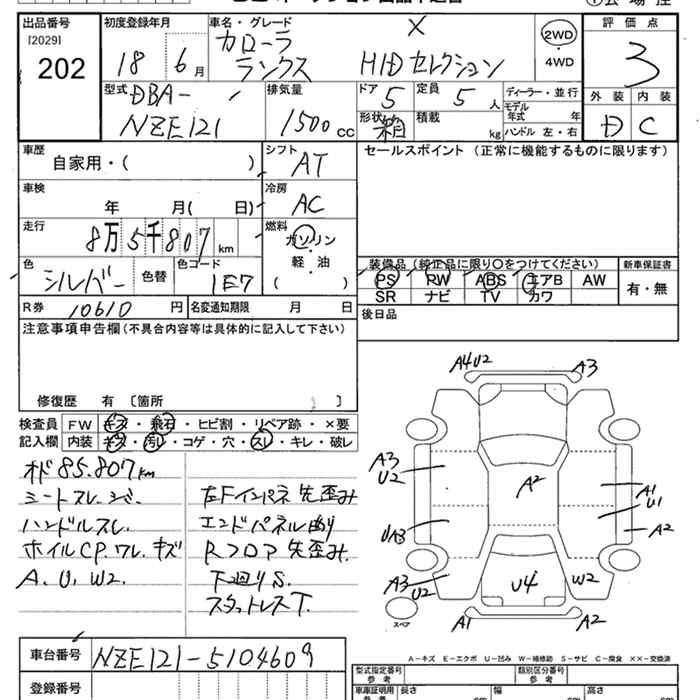 出品番号 初度登録年月 車名・グレード 評価点
[2029]
202
18 6月
カローラ
ランクス
X
HIDセレクション
2WD
・
4WD
3
型式 排気量 ドア 定員 ディーラー・並行 外装 内装
DBA-
NZE121
1500cc
5
5人
モデル年式 年
形状 箱 積載 kg ハンドル 左・右
D C
車歴 シフト セールスポイント (正常に機能するものに限ります)
自家用・( )
AT
車検 冷房
年 月( 日)
AC
走行 燃料
8万5千807km
ガソリン
・
軽・油
( )
色 色替 色コード
シルバー
1E7
装備品 (純正品に限り○をつけてください) 新車保証書
PS PW ABS エアB AW 有・無
SR ナビ TV カワ
R券 10610円 名変通知期限 月 日
後日品
注意事項申告欄(不具合内容等は具体的に記入して下さい)
修復歴 有 〔箇所 〕
検査員 FW キズ・飛石・ヒビ割・リペア跡・×要
記入欄 内装 キズ・汚レ・コゲ・穴・スレ・キレ・破レ
オド 85.807km
シートスレ.シバ.
ハンドルスレ.
ホイルCP.ワレ.キズ
A. U. W2.
左Fインパネ先歪み
エンドパネル曲り
Rフロア先歪み.
下廻りS.
スタットレスT.
A4U2 A3
A3
U2
A2
A1
U1
A2
UA3
A3
U2
U4
W2
スペア
A1 A2
A-キズ E-エクボ U-凹み W-補修跡 S-サビ C-腐食 XX-交換済
車台番号 NZE121-5104609
登録番号
型式指定番号
参考
類別区分番号
参考
車庫証明用
参考
長さ 幅 高さ